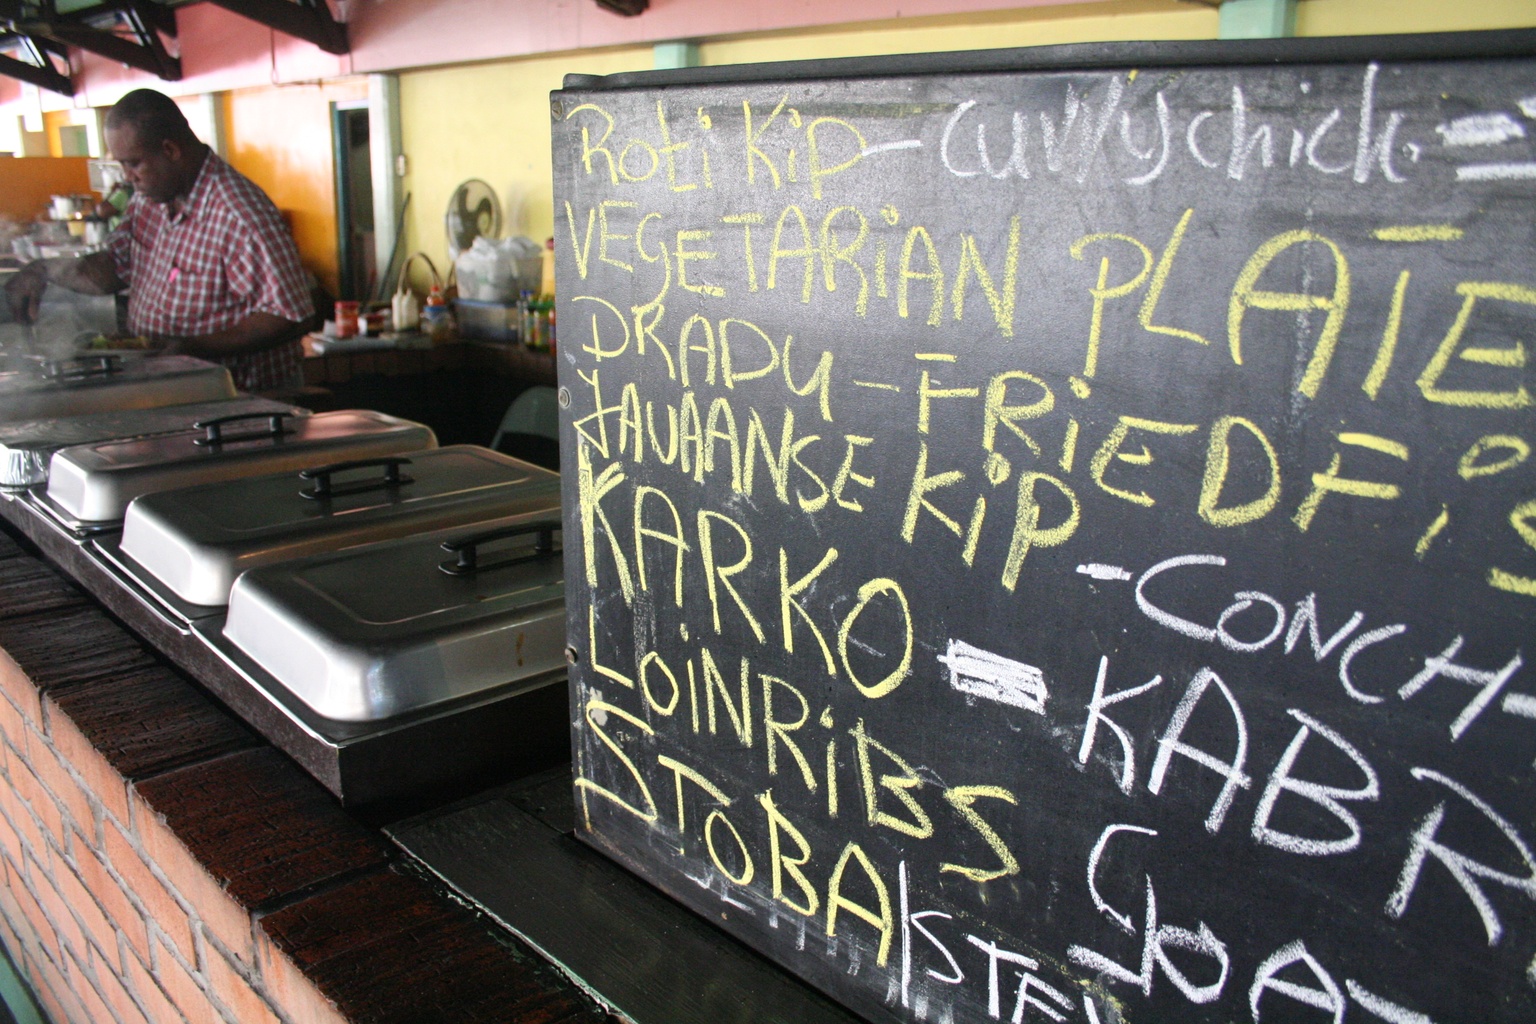 Roti Kip - Curry chick
VEGETARIAN PLATE
DRADU - FRIED FiS
JAVAANSE KiP
KARKO - CONCH-
LOiNRiBS - KABR
STOBA / STE GOA